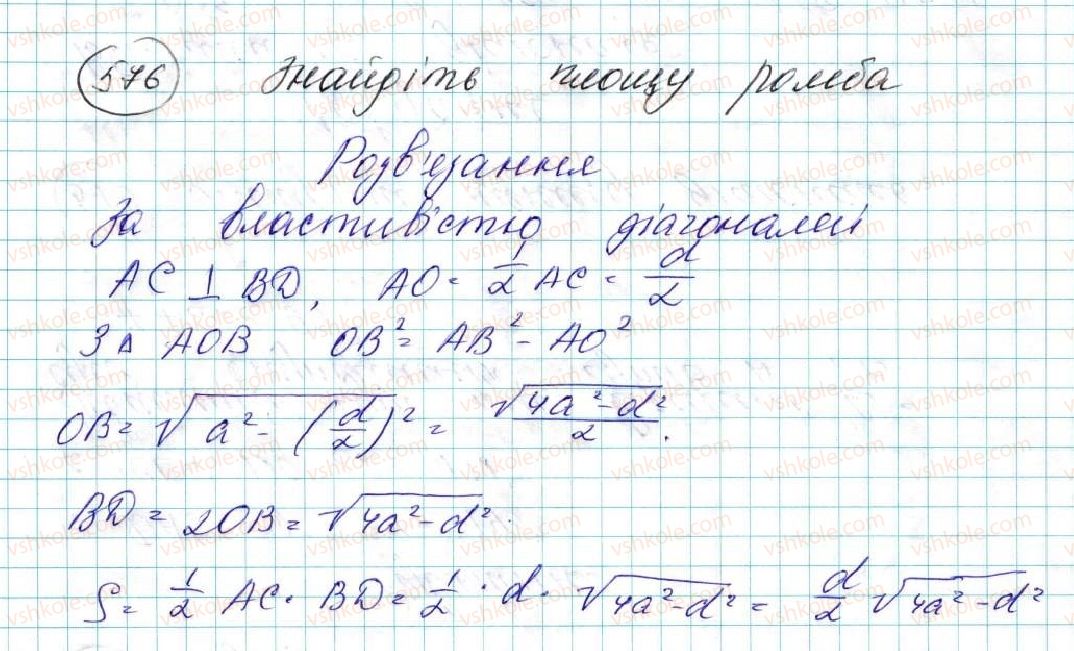 576 Знайдіть площу ромба
Розв'язання
За властивістю діагоналей
AC ⊥ BD, AO = 1/2 AC = d/2
З Δ AOB OB² = AB² - AO²
OB = √(a² - (d/2)²) = √(4a² - d²)/2.
BD = 2OB = √(4a² - d²).
S = 1/2 AC · BD = 1/2 · d · √(4a² - d²) = d/2 √(4a² - d²)
vshkole.com